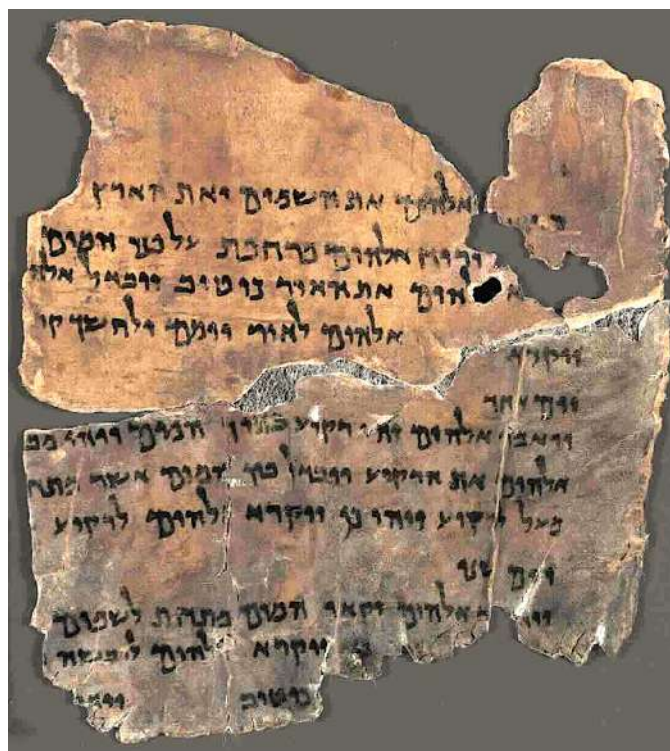 אלהים את השמים ואת הארץ
ורוח אלהים מרחפת על פני המים
אלהים את האור כי טוב ויבדל אלה
ויקרא אלהים לאור יומם ולחשך קר
יום אחד
ויאמר אלהים יהי רקיע בתוך המים ויהי מב
אלהים את הרקיע ויבדל בין המים אשר מתח
מעל לרקיע ויהי כן ויקרא אלהים לרקיע
יום שני
אלהים המים מתחת לשמים
ויקרא אלהים ליבשה
כי טוב